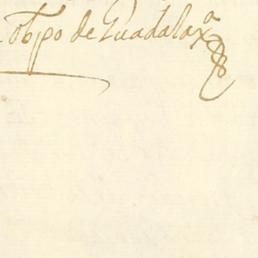 obpo de Guadalaxª